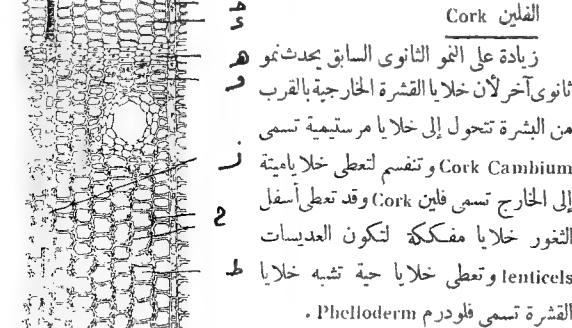 الفلين Cork
زيادة على النمو الثانوى السابق يحدث نمو
ثانوى آخر لأن خلايا القشرة الخارجية بالقرب
من البشرة تتحول إلى خلايا مرستيمية تسمى
Cork Cambium وتنقسم لتعطى خلايا ميتة
إلى الخارج تسمى فلين Cork وقد تعطى أسفل
الثغور خلايا مفككة لتكون العديسات
lenticels وتعطى خلايا حية تشبه خلايا
القشرة تسمى فلودرم Phelloderm .
د
هـ
و
ز
ح
ط